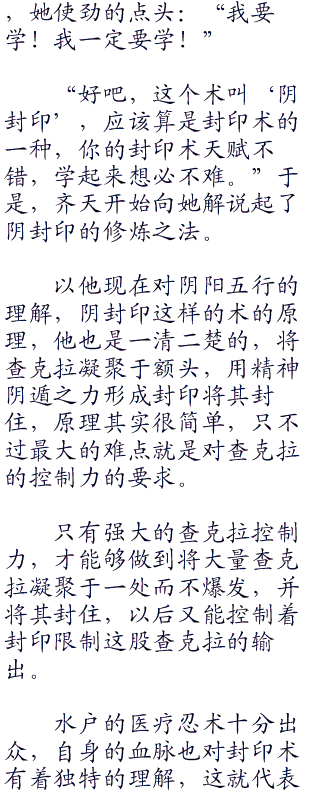 ，她使劲的点头：“我要
学！我一定要学！”
“好吧，这个术叫‘阴
封印’，应该算是封印术的
一种，你的封印术天赋不
错，学起来想必不难。”于
是，齐天开始向她解说起了
阴封印的修炼之法。
以他现在对阴阳五行的
理解，阴封印这样的术的原
理，他也是一清二楚的，将
查克拉凝聚于额头，用精神
阴遁之力形成封印将其封
住，原理其实很简单，只不
过最大的难点就是对查克拉
的控制力的要求。
只有强大的查克拉控制
力，才能够做到将大量查克
拉凝聚于一处而不爆发，并
将其封住，以后又能控制着
封印限制这股查克拉的输
出。
水户的医疗忍术十分出
众，自身的血脉也对封印术
有着独特的理解，这就代表